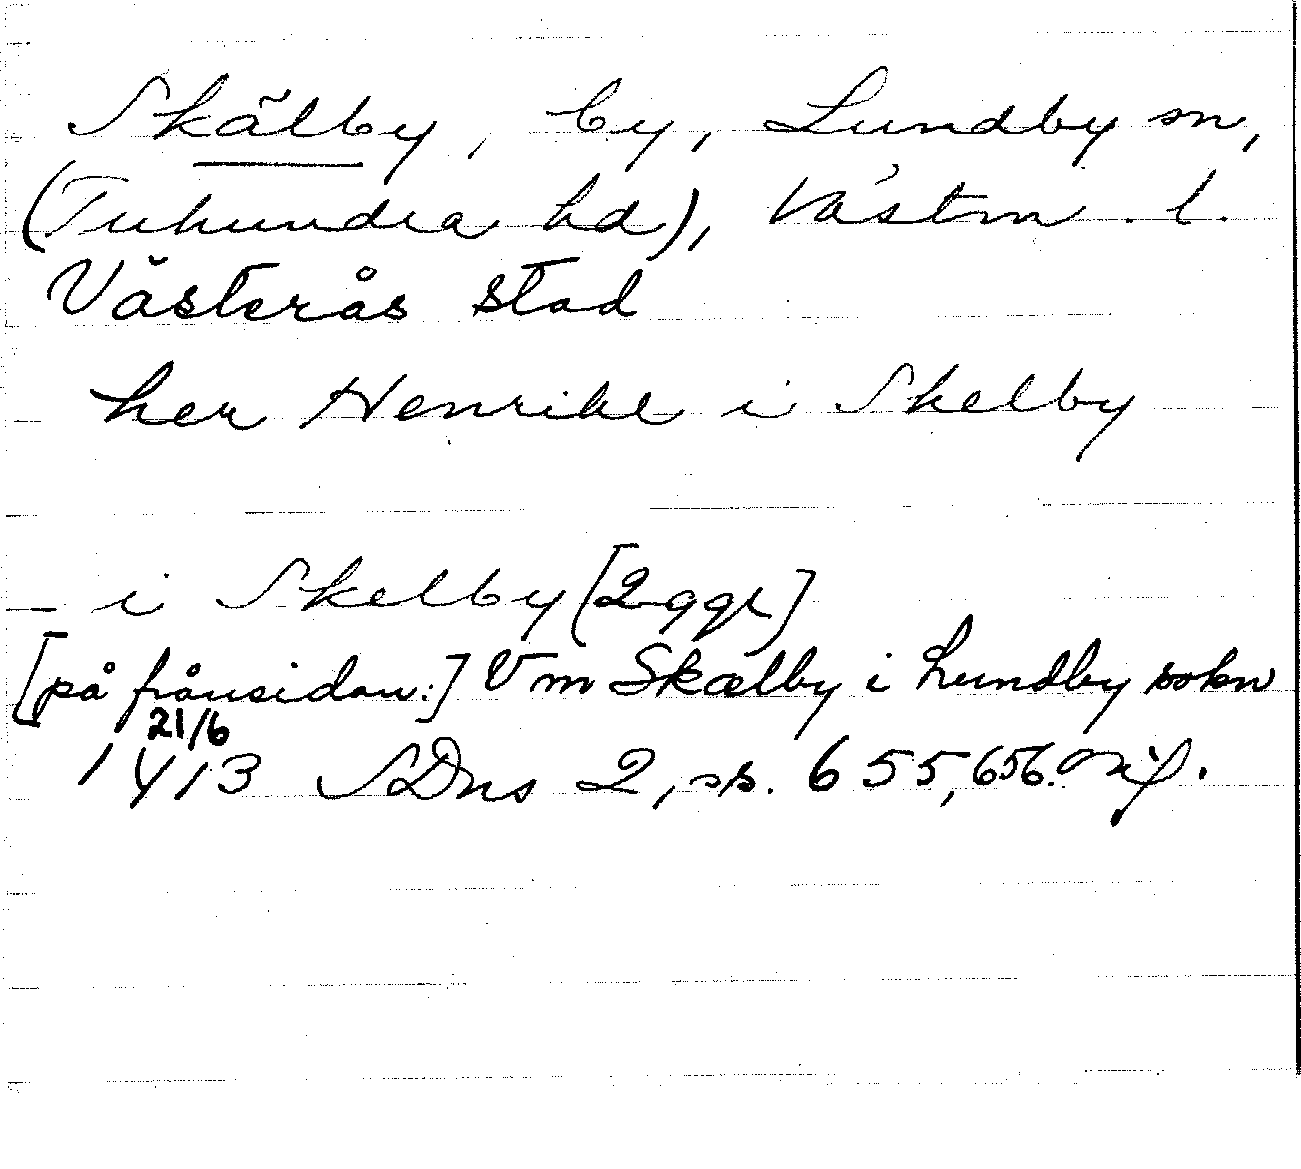 Skälby, by, Lundby sn,
(Tuhundra hd), Västm. l.
Västerås stad
her Henrikl i Skelby
i Skelby [2 ggr]
[på frånsidan:] Vm Skælby i Lundby sokn
21/6
1413 SDns 2, s. 655, 656. Or.